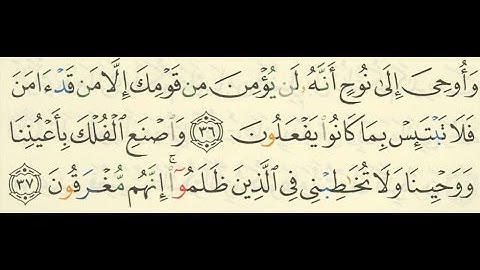 وَأُوحِىَ إِلَىٰ نُوحٍ أَنَّهُۥ لَن يُؤْمِنَ مِن قَوْمِكَ إِلَّا مَن قَدْ ءَامَنَ
فَلَا تَبْتَئِسْ بِمَا كَانُوا۟ يَفْعَلُونَ ٣٦ وَٱصْنَعِ ٱلْفُلْكَ بِأَعْيُنِنَا
وَوَحْيِنَا وَلَا تُخَـٰطِبْنِى فِى ٱلَّذِينَ ظَلَمُوٓا۟ ۚ إِنَّهُم مُّغْرَقُونَ ٣٧